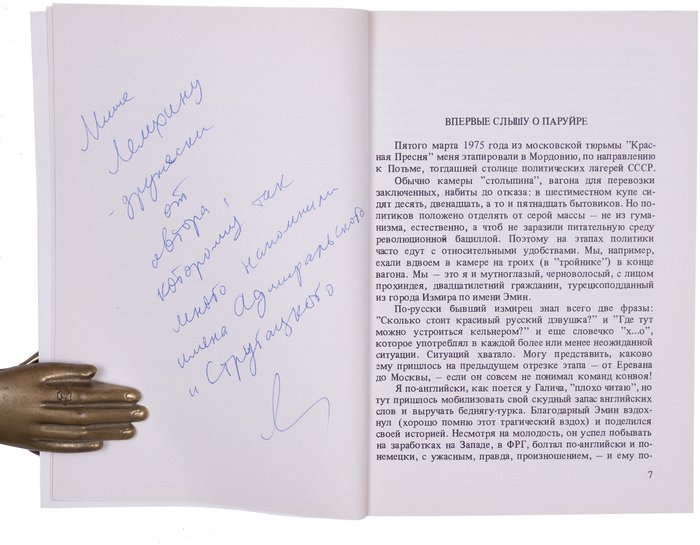 Мише
Лемхину
- дружески
от
автора!
которому так
много напомнили
имена Адмиральского
и Стругацкого
ВПЕРВЫЕ СЛЫШУ О ПАРУЙРЕ
Пятого марта 1975 года из московской тюрьмы "Крас-
ная Пресня" меня этапировали в Мордовию, по направлению
к Потьме, тогдашней столице политических лагерей СССР.
Обычно камеры "столыпина", вагона для перевозки
заключенных, набиты до отказа: в шестиместном купе си-
дят десять, двенадцать, а то и пятнадцать бытовиков. Но по-
литиков положено отделять от серой массы — не из гума-
низма, естественно, а чтоб не заразили питательную среду
революционной бациллой. Поэтому на этапах политики
часто едут с относительными удобствами. Мы, например,
ехали вдвоем в камере на троих (в "тройнике") в конце
вагона. Мы — это я и мутноглазый, черноволосый, с лицом
прохиндея, двадцатилетний гражданин, турецкоподданный
из города Измира по имени Эмин.
По-русски бывший измирец знал всего две фразы:
"Сколько стоит красивый русский дэвушка?" и "Где тут
можно устроиться кельнером?" и еще словечко "х...о",
которое употреблял в каждой более или менее неожиданной
ситуации. Ситуаций хватало. Могу представить, каково
ему пришлось на предыдущем отрезке этапа — от Еревана
до Москвы, — если он совсем не понимал команд конвоя!
Я по-английски, как поется у Галича, "плохо читаю", но
тут пришлось мобилизовать свой скудный запас английских
слов и выручать беднягу-турка. Благодарный Эмин вздох-
нул (хорошо помню этот трагический вздох) и поделился
своей историей. Несмотря на молодость, он успел побывать
на заработках на Западе, в ФРГ, болтал по-английски и по-
немецки, с ужасным, правда, произношением, — и ему по-
7